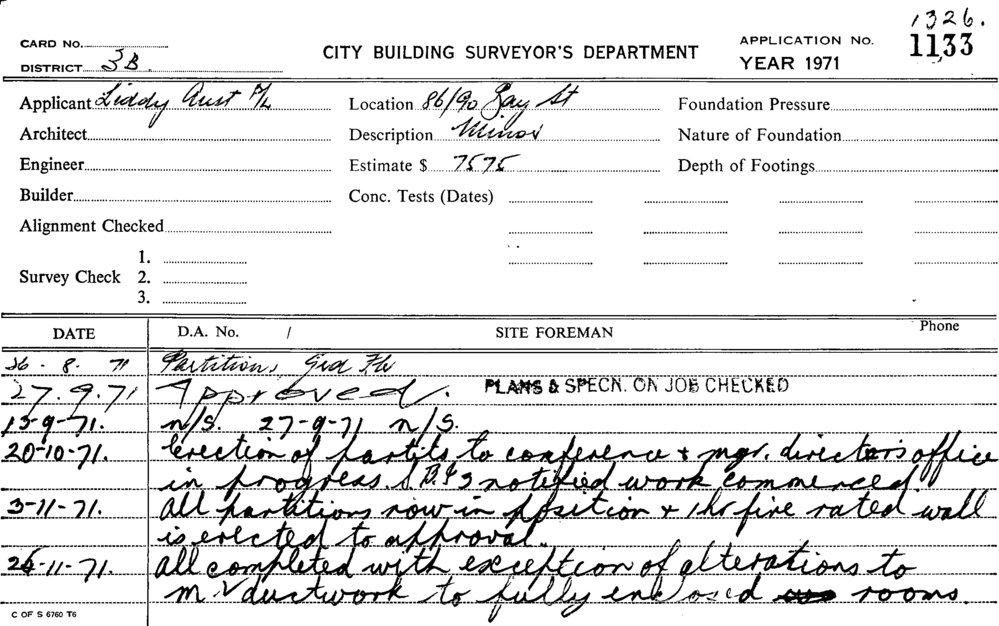 1326.
CARD No.
CITY BUILDING SURVEYOR'S DEPARTMENT
APPLICATION No. 1133
DISTRICT 3B.
YEAR 1971
Applicant Liddy Aust P/L
Location 86/90 Bay St
Foundation Pressure
Architect
Description Minor
Nature of Foundation
Engineer
Estimate $ 7575
Depth of Footings
Builder
Conc. Tests (Dates)
Alignment Checked
1.
Survey Check 2.
3.
DATE D.A. No. / SITE FOREMAN Phone
26-8-71 Partitions Grd Flr
27.9.71 Approved. PLANS & SPECN. ON JOB CHECKED
13-9-71. n/S. 27-9-71 n/S.
20-10-71. Erection of partit's to conference + mgr. directors office
in progress. notified work commenced.
3-11-71. All partitions now in position + 1 hr fire rated wall
is erected to approval.
26-11-71. All completed with exception of alterations to
m V ductwork to fully enclosed rooms.
C OF S 6760 T6